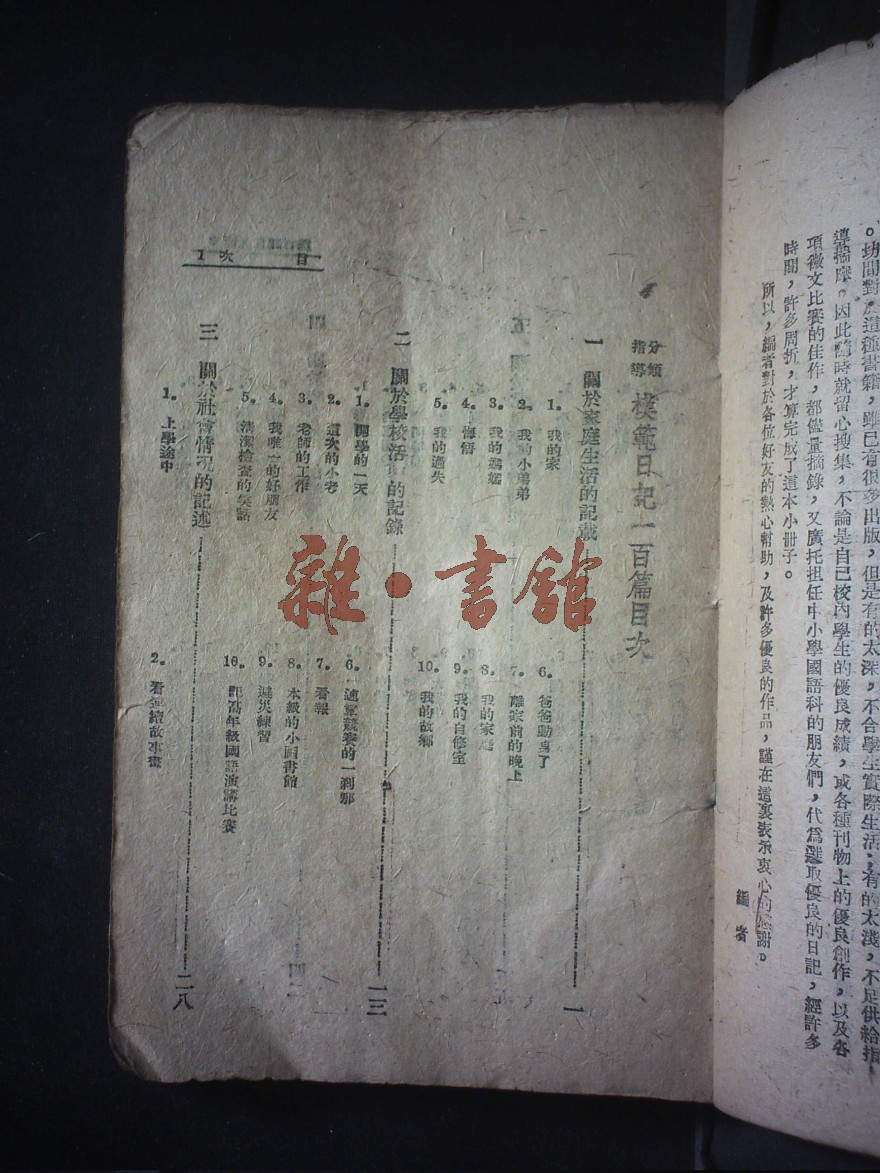 。坊間對於這種書籍，雖已有很多出版，但是有的太深，不合學生實際生活；有的太淺，不足供給指
導揣摩。因此隨時就留心搜集，不論是自己校內學生的優良成績，或各種刊物上的優良創作，以及各
項徵文比賽的佳作，都儘量摘錄，又廣托担任中小學國語科的朋友們，代爲選取優良的日記，經許多
時間，許多周折，才算完成了這本小冊子。
所以，編者對於各位好友的熱心幫助，及許多優良的作品，謹在這裏表示衷心的感謝。
編者
分類指導 模範日記一百篇目次
一 關於家庭生活的記載 一
1。我的家
2。我的小弟弟
3。我的媽媽
4。悔悟
5。我的過失
6。爸爸動身了
7。離家前的晚上
8。我的家庭
9。我的自修室
10。我的故鄉
二 關於學校活 的記錄 一三
1。開學的一天
2。這次的小考
3。老師的工作
4。我唯一的好朋友
5。清潔檢查的笑話
6。速算競賽的一剎那
7。看報
8。本級的小圖書館
9。避災練習
10。記高年級國語演講比賽
三 關於社會情況的記述 二八
1。上學途中
2。看連續故事畫
目次 1
雜·書館